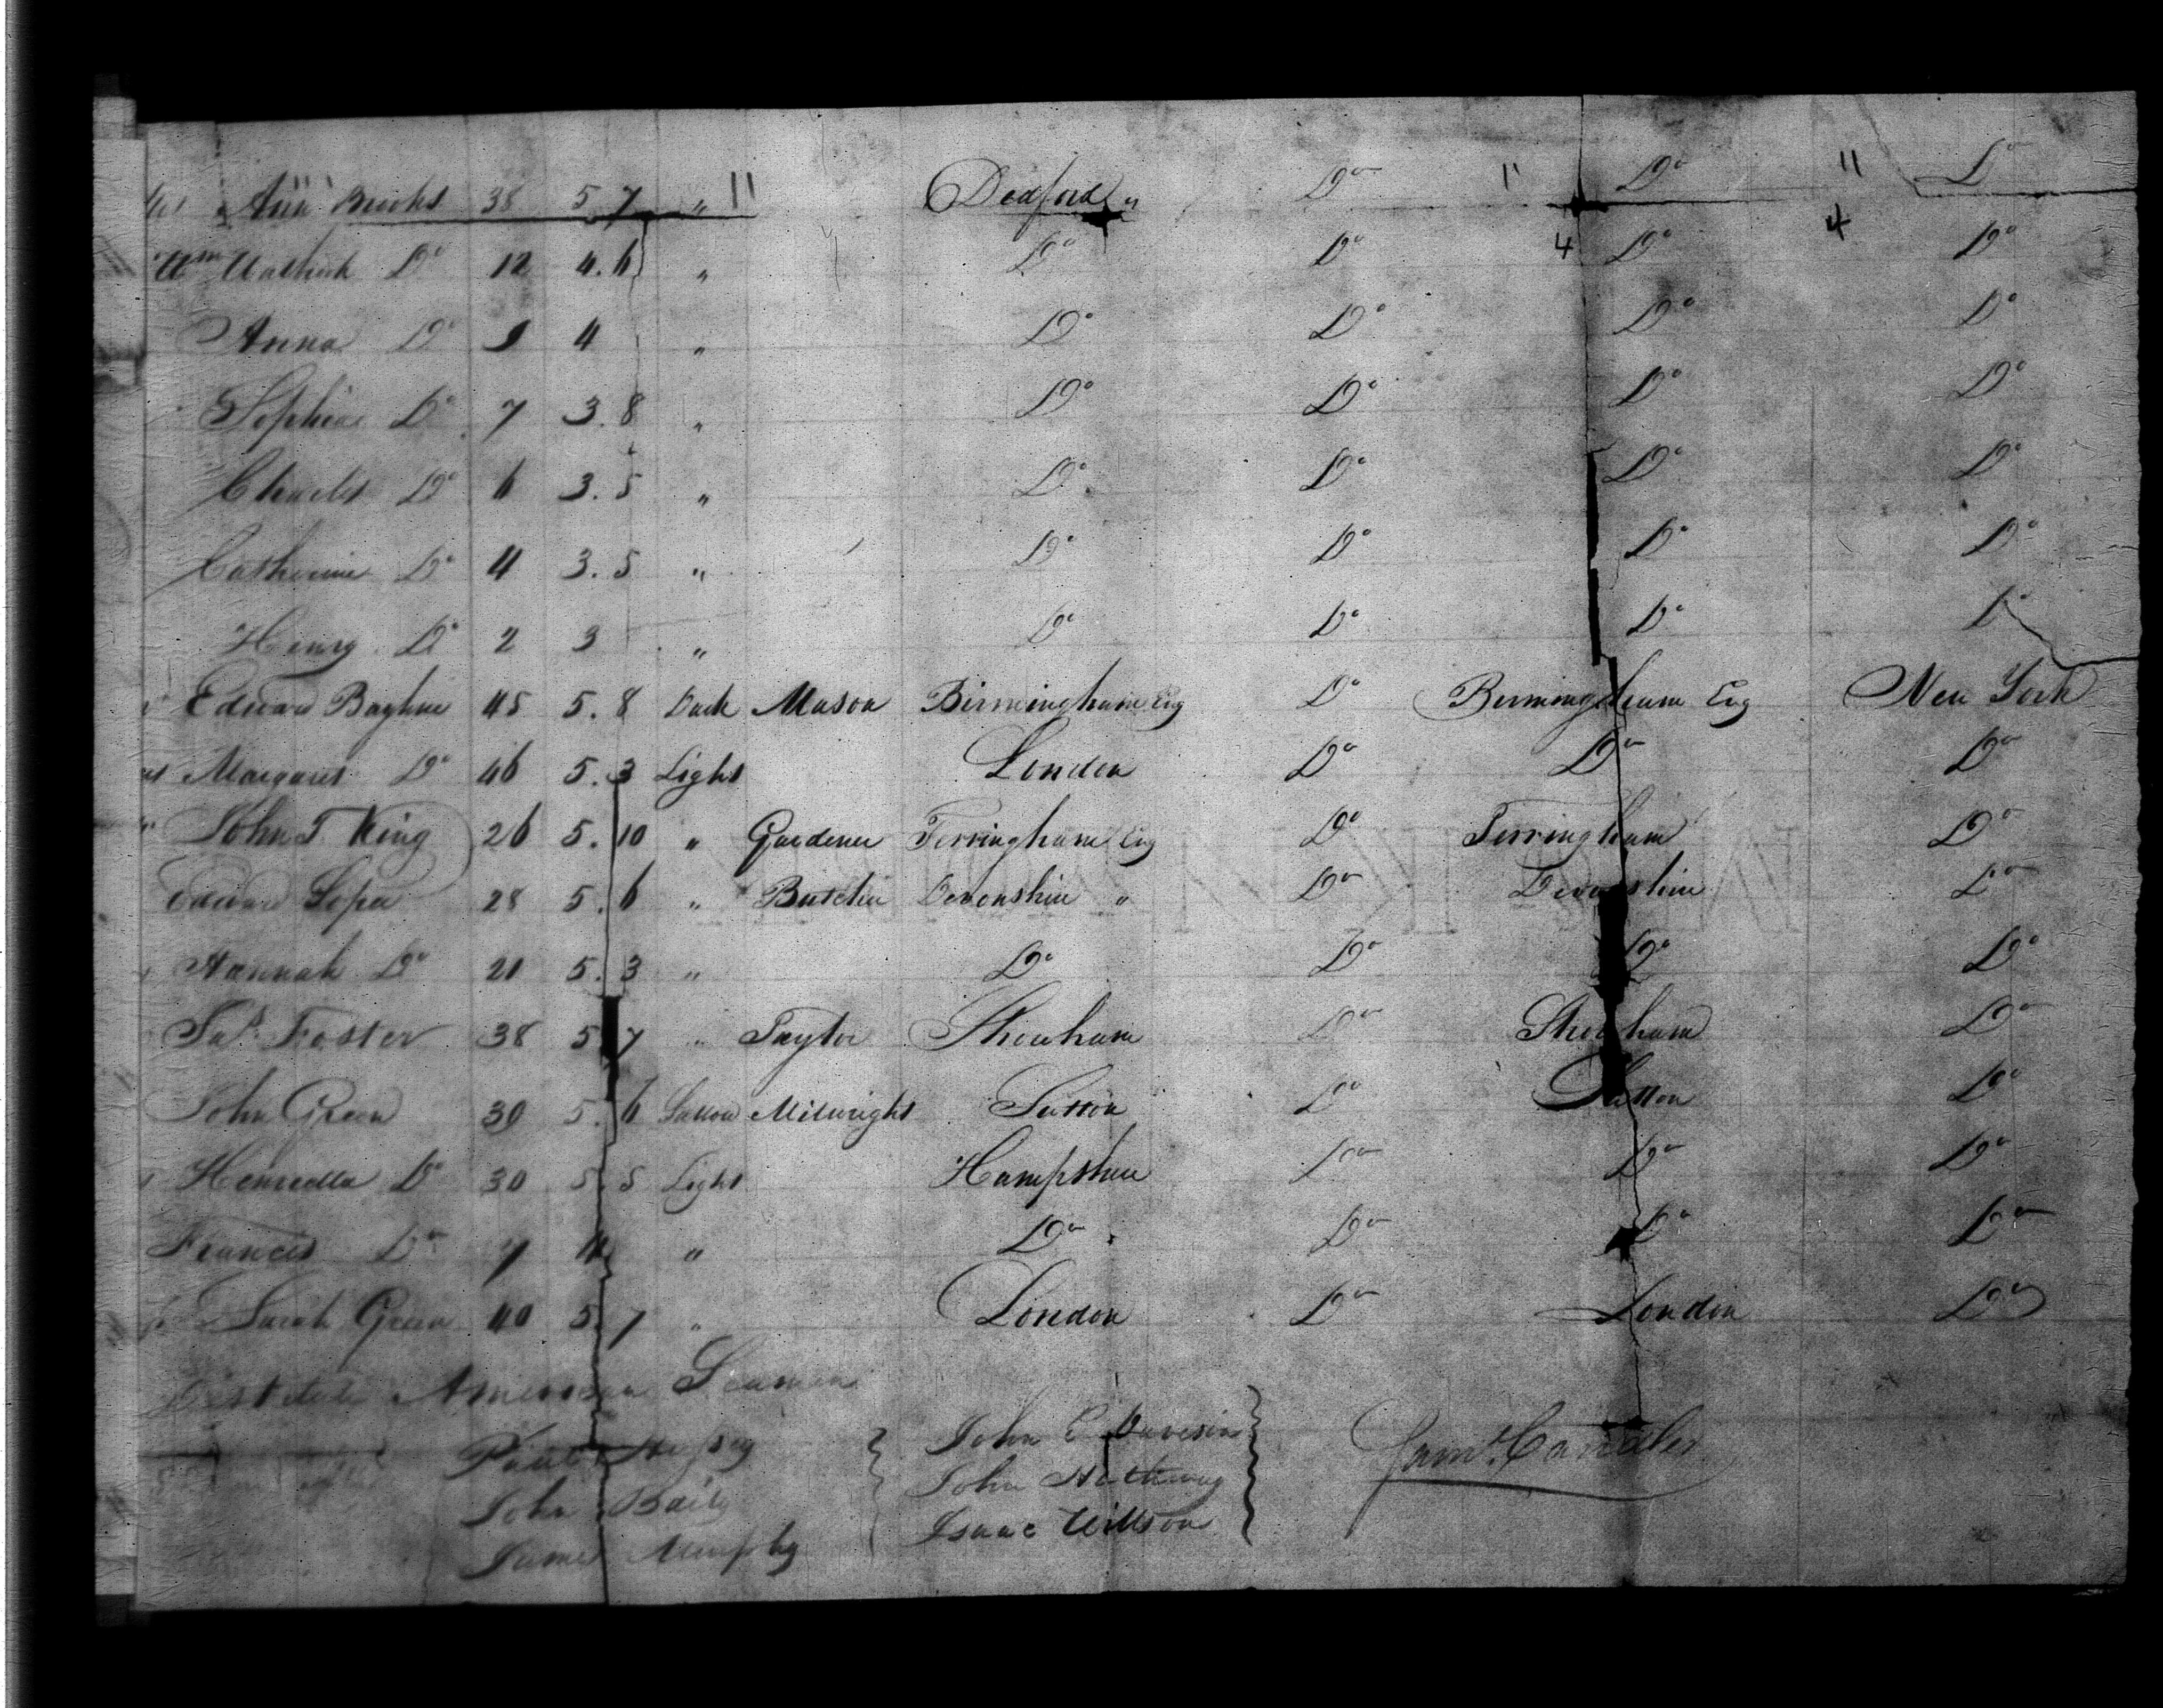 Ann Brooks 38 5.7 " " Dedford " Do " Do " Do
Wm Do 12 4.6 " Do Do 4 Do 4 Do
Anna Do 9 4 " Do Do Do Do
Sophia Do 7 3.8 " Do Do Do Do
Charles Do 6 3.5 " Do Do Do Do
Catherine Do 4 3.5 " Do Do Do Do
Henry Do 2 3 " Do Do Do Do
Edward 45 5.8 Dark Mason Birmingham Eng Do Birmingham Eng New York
Margaret Do 46 5.3 Light London Do Do Do
John T King 26 5.10 " Gardener Terringham Eng Do Terringham Do
Edward 28 5.6 " Butcher Devonshire " Do Devonshire Do
Hannah Do 21 5.3 " Do Do Do Do
Foster 38 5.7 " Taylor Shouham Do Shouham Do
John Green 30 5.6 Millwright Sutton Do Sutton Do
Do 30 5.5 Light Hampshire Do Do Do
Frances Do 7 4 " Do Do Do Do
Sarah Green 40 5.7 " London Do London Do
American Seamen
Paul Hussey } John E } Saml Candler
John Baily } John Hathway }
James Murphy } Isaac Willson }